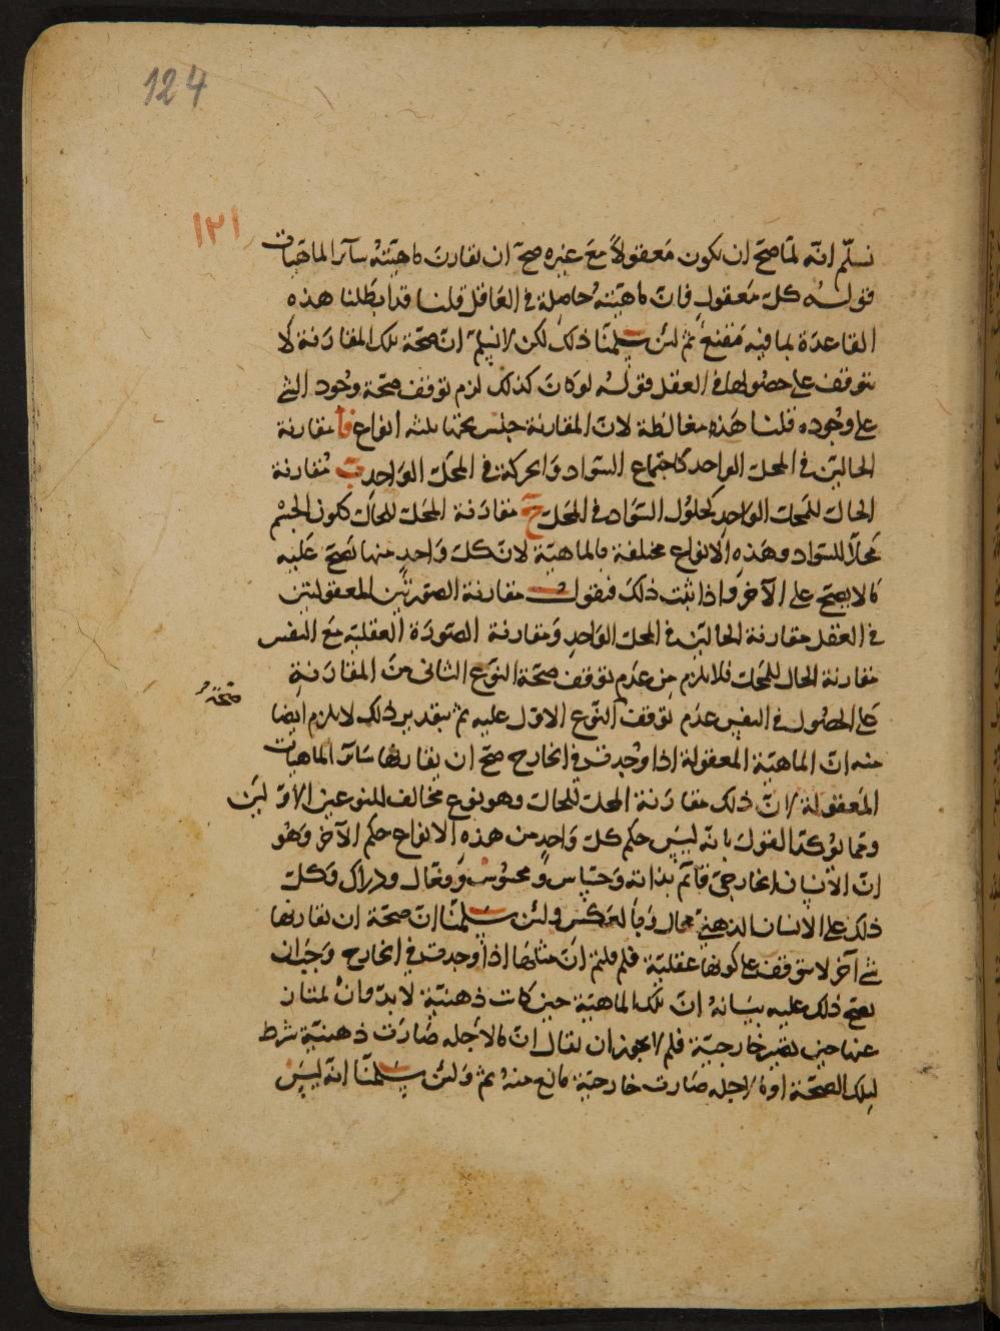 124
١٢١
نسلّم انّه لمّا صحّ ان يكون مَعقولاً مَعَ غيره صحّ ان يقارن ماهيّته سآئر الماهيّات
قولـه كلّ مَعقولٍ فانّ ماهيّته حاصِلة في العَاقل قلنا قد ابطلنا هذه
القاعدة بما فيه مَقنعٌ ثم لئن سلّمنا ذلك لكن لا نسلّم انّ صحّة تلك المقارَنة لا
تتوقف على حصُولها في العقل قولُه لو كانَ كذلك لزم توقف صحّة وجُود الشئ
على وجُوده قلنا هَذه مغالطة لانّ المقارنة جنس تحتها ثلثه انواع فآ مقارنة
الحالّين في المحل الواحد كاجتماع السّواد وَالحركة في المحلّ الوَاحد بَ مُقارنة
الحال للمحل الوَاحد كحلوُل السّوَاد في المَحَل جَ مقارَنة المَحَل للحالّ ككون الجسْم
مَحلاًّ للسّواد وهَذِه الانواع مختلفة بالماهيّة لانّ كلّ وَاحدٍ منها يَصحّ عَليه
مَا لا يصحّ على الآخر وَاذا ثبت ذلكَ فنقول مقارنة الصّورتَين المعقولتين
في العقل مقارنة الحالّين في المحل الوَاحد وَمقارنة الصّورَة العقليّة مَعَ النفس
مقارنة الحال للمَحَل فلا يلزم مِن عدم توقف صحّة النوَع الثانى منَ المقارَنةِ
عَلى الحصُول في النفس عدَم توقف النَّوع الاوّل عليه ثم بتقدير ذلك لا يلزم ايضا
صحّة
منه انّ الماهيّة المعقولة اذا وُجدت في الخارج صحّ ان يقارنها سَائر الماهيّات
المَعقولة لانّ ذلك مقارَنة المحلّ للحالّ وهو نوع مخالف للنوعين الاوّلين
وممّا يؤكدّ القول بانّه ليسَ حكم كلّ وَاحدٍ من هذه الانواع حكم الآخر وَهُو
انّ الانسان الخارجىّ قآئم بذاته وَحسّاس وَمحسُوس وَفعّال ودرّاك وَكلّ
ذلك على الانسان الذهنىّ محال وَبالعَكس ولئن سَلّمنَا انّ صحّة ان يقارنها
شئ آخر لا يتوقف على كونها عقليّة فلم قلتم انّ مثلهَا اذا وجدت في الخارج وَجبَ ان
يصحّ ذلك عليه بيَانهُ انّ تلك الماهيّة حين كانت ذهنيّة لا بدّ وانْ تمتاز
عنها حين تصير خارجيّة فلم لا يجوز ان يقال انّ ما لاَجله صَارَت ذهنيّة شرط
لتلك الصحّة او مَا لاجله صَارت خارجيّة مانع منهُ ثم وَلئن سَلّمنَّا انّه ليسَ